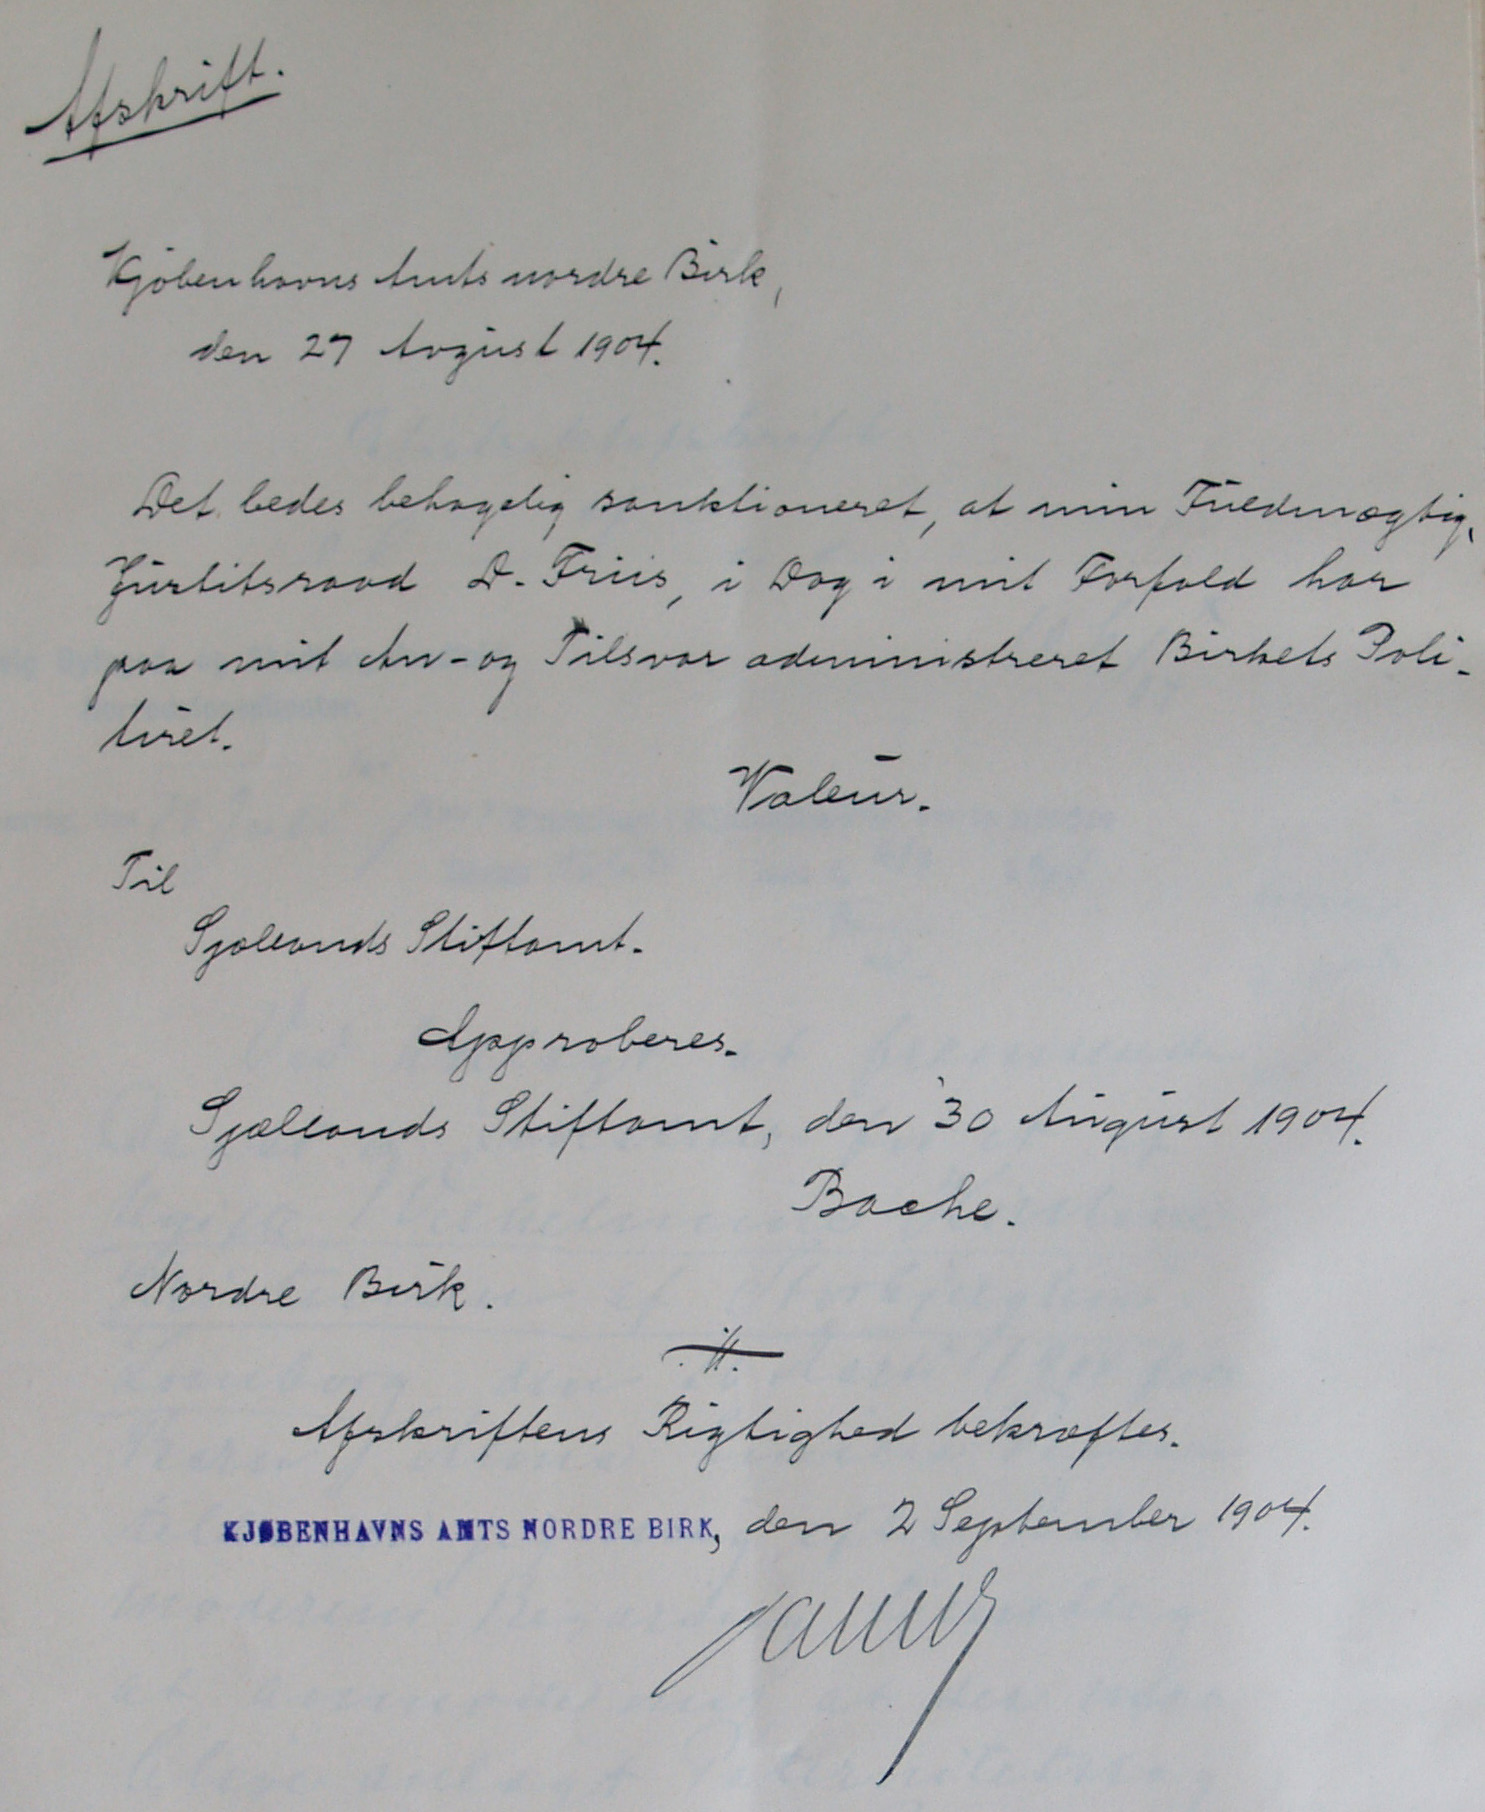 Afskrift.
Kjøbenhavns Amts nordre Birk,
den 27 August 1904.
Det bedes behagelig sanktioneret, at min Fuldmægtig,
Justitsraad D. Friis, i Dag i mit Forfald har
paa mit An- og Tilsvar administreret Birkets Poli-
tiret.
Valeur.
Til
Sjællands Stiftamt.
Approberes.
Sjællands Stiftamt, den 30 August 1904.
Bache.
Nordre Birk.
Afskriftens Rigtighed bekræftes.
KJØBENHAVNS AMTS NORDRE BIRK, den 2 September 1904.